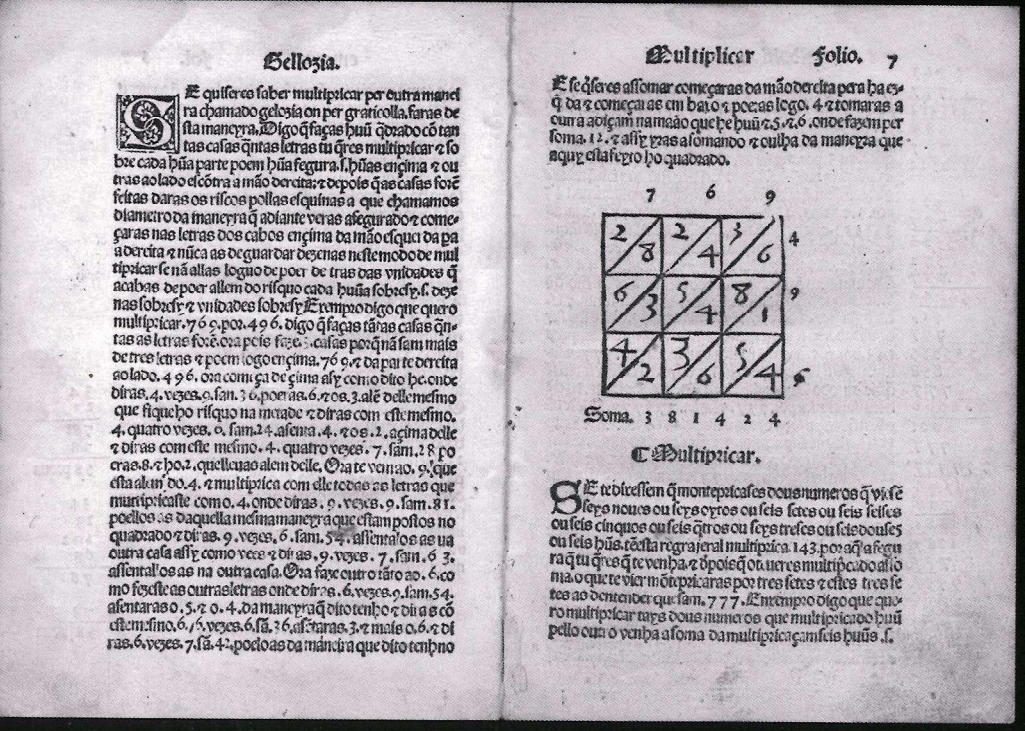 Gellozia.
SE quiseres saber multipricar per outra manei
ra chamado gelozia ou per graticolla. faras de
sta maneyra, Digo q̃ faças huũ q̃drado cõ tan
tas casas q̃ntas letras tu q̃res multipricar ⁊ so
bre cada hũa parte poem hũa fegura .s. hũas ençima ⁊ ou
tras ao lado escõtra a mão dereita: ⁊ depois q̃ as casas forẽ
feitas daras os riscos pollas esquinas a que chamamos
diametro da maneyra q̃ adiante veras afegurado ⁊ come-
çaras nas letras dos cabos ençima da mão esquerda pa
a dereita ⁊ nũca as de guardar dezenas neste modo de mul
tipricar se nã allas loguo de poer de tras das vnidades q̃
acabas de poer allem do risquo cada huũa sobre sy .s. deze
nas sobre sy ⁊ vnidades sobre sy Exempro digo que quero
multipricar. 769. por. 496. digo q̃ faças tãtas casas q̃n-
tas as letras forẽ. ora pois faze. 3. casas porq̃ nã sam mais
de tres letras ⁊ poem logo ençima. 769. ⁊ da parte dereita
ao lado. 496. ora começa de çima asy como dito he. onde
diras. 4. vezes. 9. san. 36. poeras. 6. ⁊ os. 3. alẽ delle mesmo
que fique ho risquo na metade ⁊ diras com este mesmo.
4. quatro vezes. 6. sam. 24. asenta. 4. ⁊ os. 2. açima delle
⁊ diras com este mesmo. 4. quatro vezes. 7. sam. 28 po
eras. 8. ⁊ ho. 2. que lleuao alem delle. Ora te vem ao. 9. que
esta alem do. 4. ⁊ multiprica com elle todas as letras que
multipricaste com o. 4. onde diras. 9. vezes. 9. sam. 81.
poellos as daquella mesma maneyra que estam postos no
quadrado ⁊ diras. 9. vezes. 6. sam. 54. assental os as na
outra casa assy como vees ⁊ diras. 9. vezes. 7. sam. 63.
assental os as na outra casa. Ora faze outro tãto ao. 6. co
mo fezeste as outras letras onde diras. 6. vezes. 9. sam. 54.
asentaras o. 5. ⁊ o. 4. da maneyra q̃ dito tenho ⁊ diras cõ
este mesmo. 6. vezes. 6. sã. 36. asẽtaras. 3. ⁊ mais o. 6. ⁊ di
ras. 6. vezes. 7. sã. 42. poelo as da maneira que dito tenhno
Multiplicar Folio. 7
E se q̃seres assomar começaras da mão dereita pera ha es-
q̃da ⁊ começaras em baixo ⁊ poeras logo. 4 ⁊ tomaras a
outra adiçam na mão que he huũ ⁊ 5. ⁊ 6. onde fazem per
soma. 12. ⁊ assy yras asomando ⁊ oulha da maneyra que
aquy esta feyto ho quadrado.
7 6 9
2 8 2 4 3 6 4
6 3 5 4 8 1 9
4 2 3 6 5 4 6
Soma. 3 8 1 4 2 4
C Multipricar.
SE te dissessem q̃ montepricases dous numeros q̃ viese
seys noues ou seys oytos ou seis setes ou seis seises
ou seis cinquos ou seis q̃tros ou seys treses ou seis douses
ou seis hũs. tẽ esta regra jeral multiprica. 143. por aq̃ a fegu
ra q̃ tu q̃res q̃ te venha. ⁊ dpois q̃ ot. ueres multipricado asso
ma. o que te vier mõtepricaras por tres setes ⁊ estes tres se
tes as dentender que sam. 777. Exempro digo que que-
ro multipricar tays dous numeros que multipricado huũ
pello outro venha a soma da multipricaçam seis huũs .s.